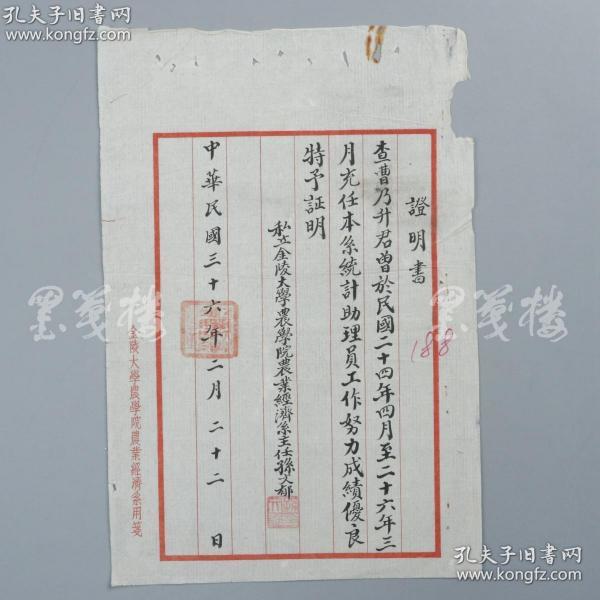 孔夫子旧书网
www.kongfz.com
孔夫子旧书网
www.kongfz.com
證明書
查曹乃升君曾於民國二十四年四月至二十六年三
月充任本系統計助理員工作努力成績優良
特予証明
私立金陵大學農學院農業經濟系主任孫文郁
中華民國三十六年二月二十二日
金陵大學農學院農業經濟系用箋
188
墨笺楼
墨笺楼
孔夫子旧书网
www.kongfz.com
孔夫子旧书网
www.kongfz.com